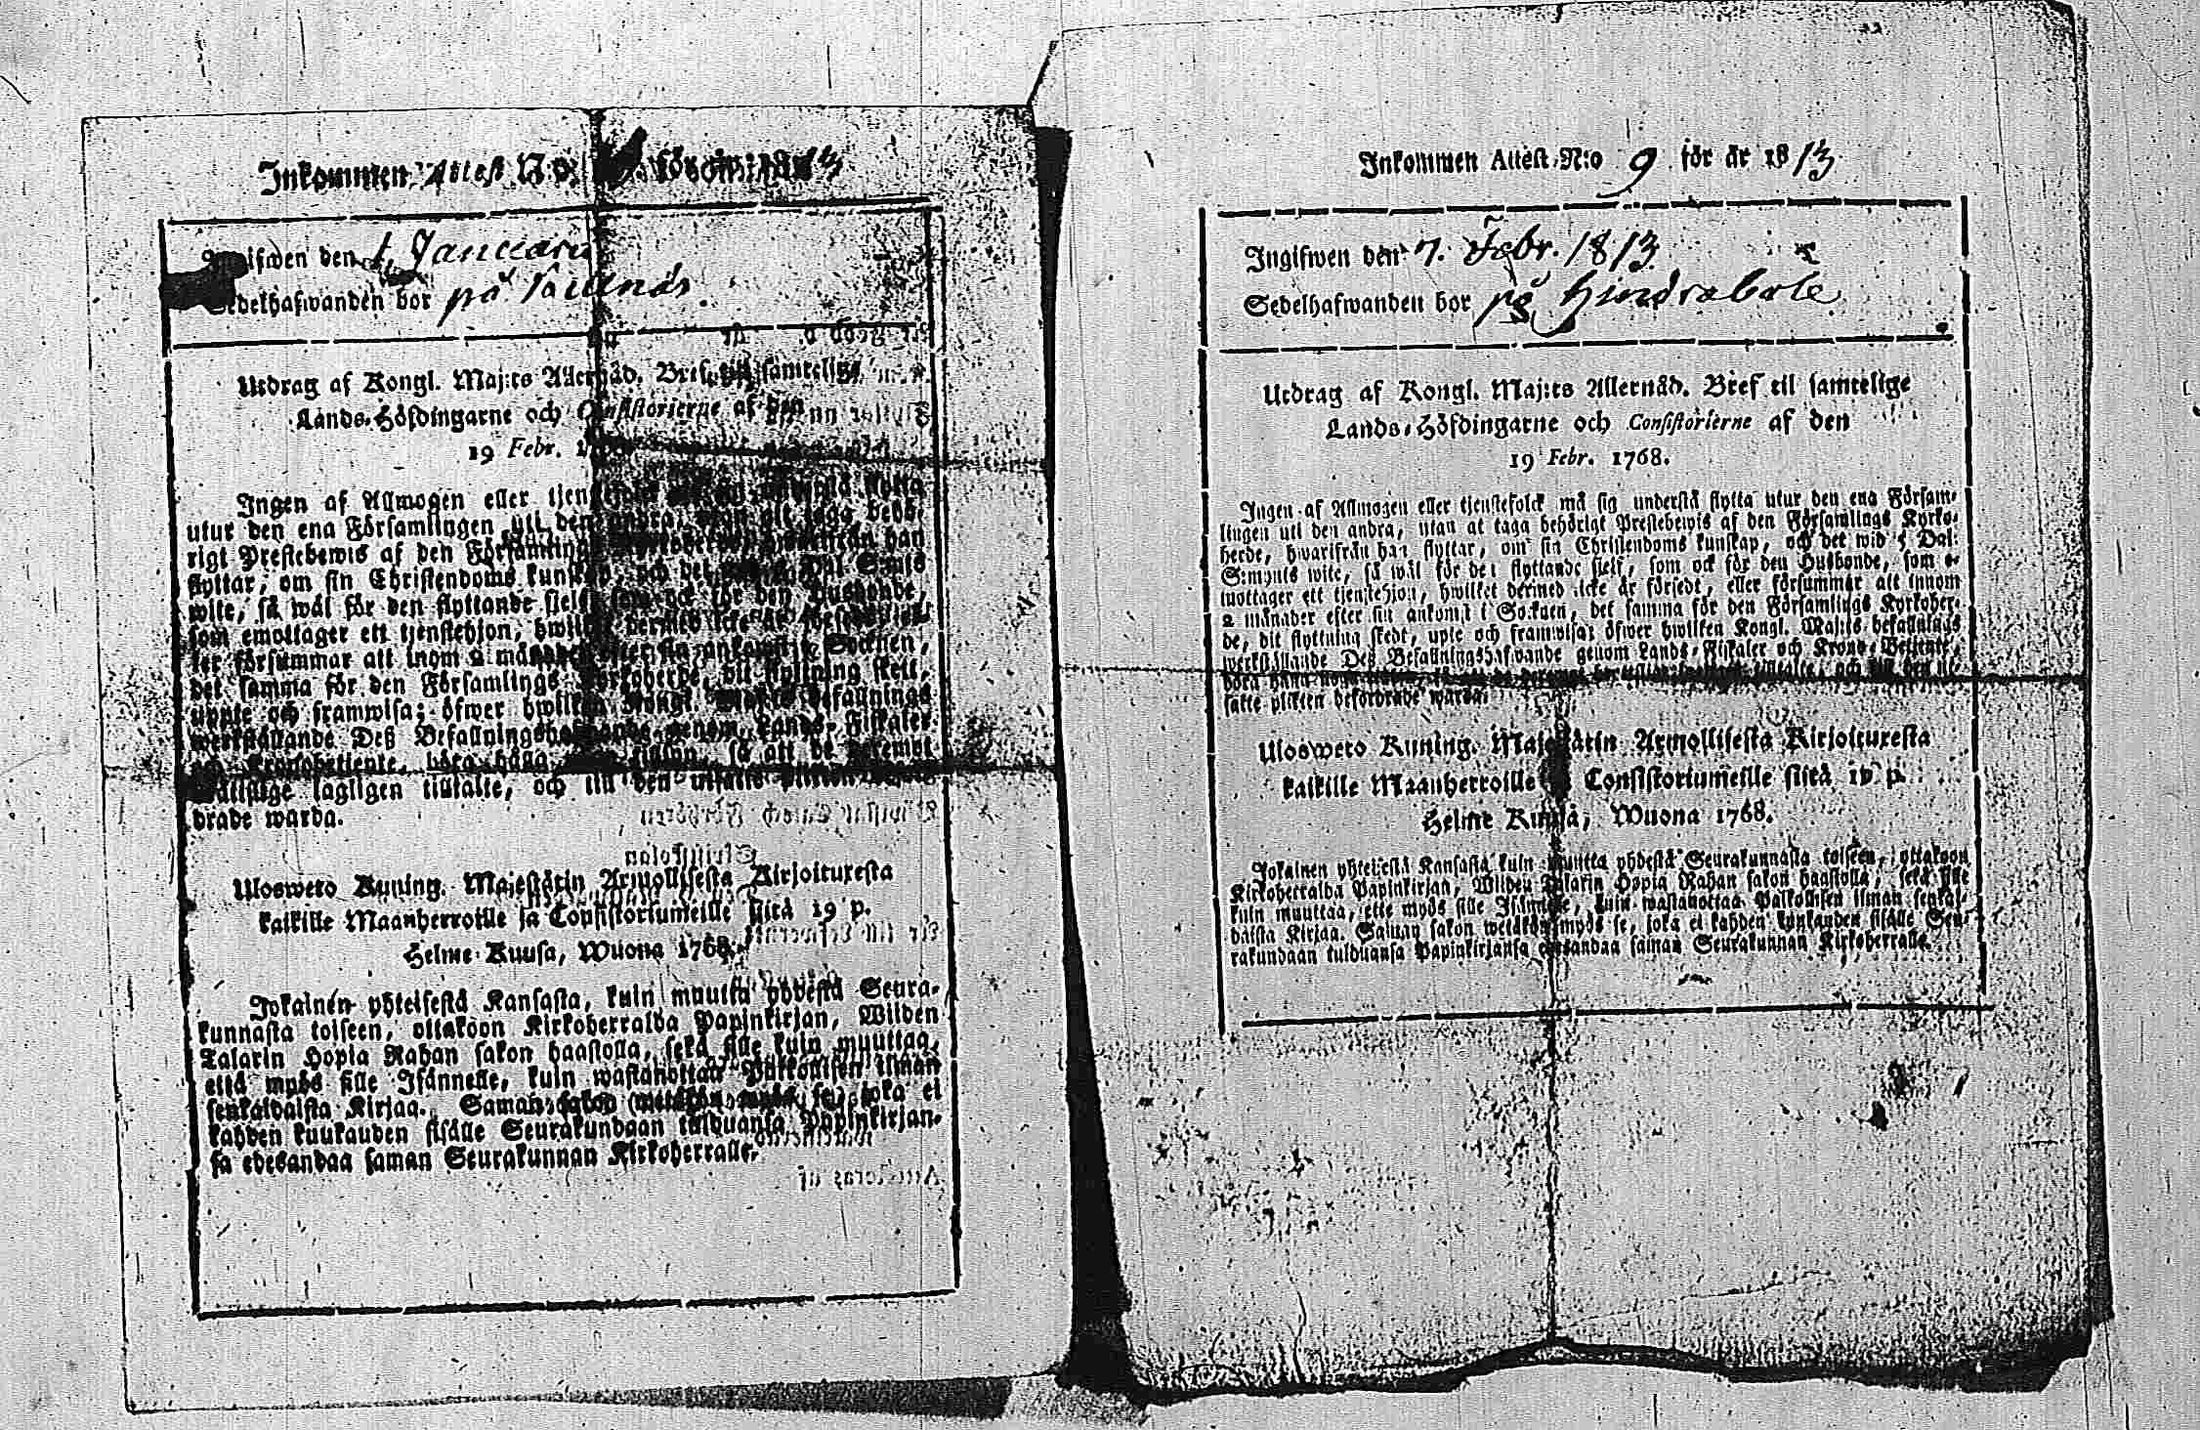 Inkommen Attest N:o för år 1813
Ingifwen den 1. Januari
Sedelhafwanden bor på
Utdrag af Kongl. Maj:ts Allernåd. Bref till samtelige
Lands-Höfdingarne och Consistorierne af den
19 Febr.
Ingen af Allmogen eller tjenstefolck må sig understå flytta
utur den ena Församlingen till den andra, utan att taga behö-
rigt Prestebewis af den Församlings Kyrkoherde, hwarifrån han
flyttar, om sin Christendoms kunskap, och det wid 5 Dal. S:mts
wite, så wäl för den flyttande sielf, som ock för den Husbonde,
som emottager ett tjenstehjon, hwilket dermed icke är försedt, el-
ler försummar att inom 2 månader efter sin ankomst i Socknen,
det samma för den Församlings Kyrkoherde, dit flyttning skett,
uppte och framwisa; öfwer hwilken Kongl. Maj:ts befallnings
werkställande Deß Befallningshafwande genom Lands-Fiskaler
och Kronobetjente, böra hålla så att de
lagligen tilltalte, och till den utsatte plikten beford-
drade warda.
Ulosweto Kuning. Majestätin Armollisesta Kirjoituxesta
kaikille Maanherroille ja Consistoriumeille siitä 19 p.
Helme-Kuusa, Wuona 1768.
Jokainen yhteisestä Kansasta, kuin muutta yhdestä Seura-
kunnasta toiseen, ottakoon Kirkoherralda Papinkirjan, Wiiden
Talarin Hopia Rahan sakon haastolla, sekä sille kuin muuttaa,
että myös sille Isännelle, kuin wastanottaa Palkollisen ilman
senkaldaista Kirjaa. Saman sakon wetäkön myös se, joka ei
kahden kuukauden sisälle Seurakundaan tulduansa Papinkirjan-
sa edesandaa saman Seurakunnan Kirkoherralle.
Inkommen Attest N:o 9 för år 1813
Ingifwen den 7. Febr. 1813
Sedelhafwanden bor på Hindrabole
Utdrag af Kongl. Maj:ts Allernåd. Bref til samtelige
Lands-Höfdingarne och Consistorierne af den
19 Febr. 1768.
Ingen af Allmogen eller tjenstefolck må sig understå flytta utur den ena Försam-
lingen till den andra, utan at taga behörigt Prestebewis af den Församlings Kyrko-
herde, hwarifrån han flyttar, om sin Christendoms kunskap, och det wid 5 Dal.
S:mynts wite, så wäl för den flyttande sielf, som ock för den Husbonde, som e-
mottager ett tjenstehjon, hwilket dermed icke är försedt, eller försummar att innom
2 månader efter sin ankomst i Socknen, det samma för den Församlings Kyrkoher-
de, dit flyttning skedt, upte och framwisa; öfwer hwilken Kongl. Maj:ts befallnings
werkställande Deß Befallningshafwande genom Lands-Fiskaler och Krono-Betjente,
böra hålla tilltalte, och till den ut-
satte plikten befordrade warda.
Ulosweto Kuning. Majestätin Armollisesta Kirjoituxesta
kaikille Maanherroille ja Consistoriumeille siitä 19 p.
Helme Kuusa, Wuona 1768.
Jokainen yhteisestä Kansasta kuin muutta yhdestä Seurakunnasta toiseen, ottakoon
Kirkoherralda Papinkirjan, Wiiden Talarin Hopia Rahan sakon haastolla, sekä sille
kuin muuttaa, että myös sille Isännelle, kuin wastanottaa Palkollisen ilman senkal-
daista Kirjaa. Saman sakon wetäkön myös se, joka ei kahden kuukauden sisälle Seu-
rakundaan tulduansa Papinkirjansa edesandaa saman Seurakunnan Kirkoherralle.